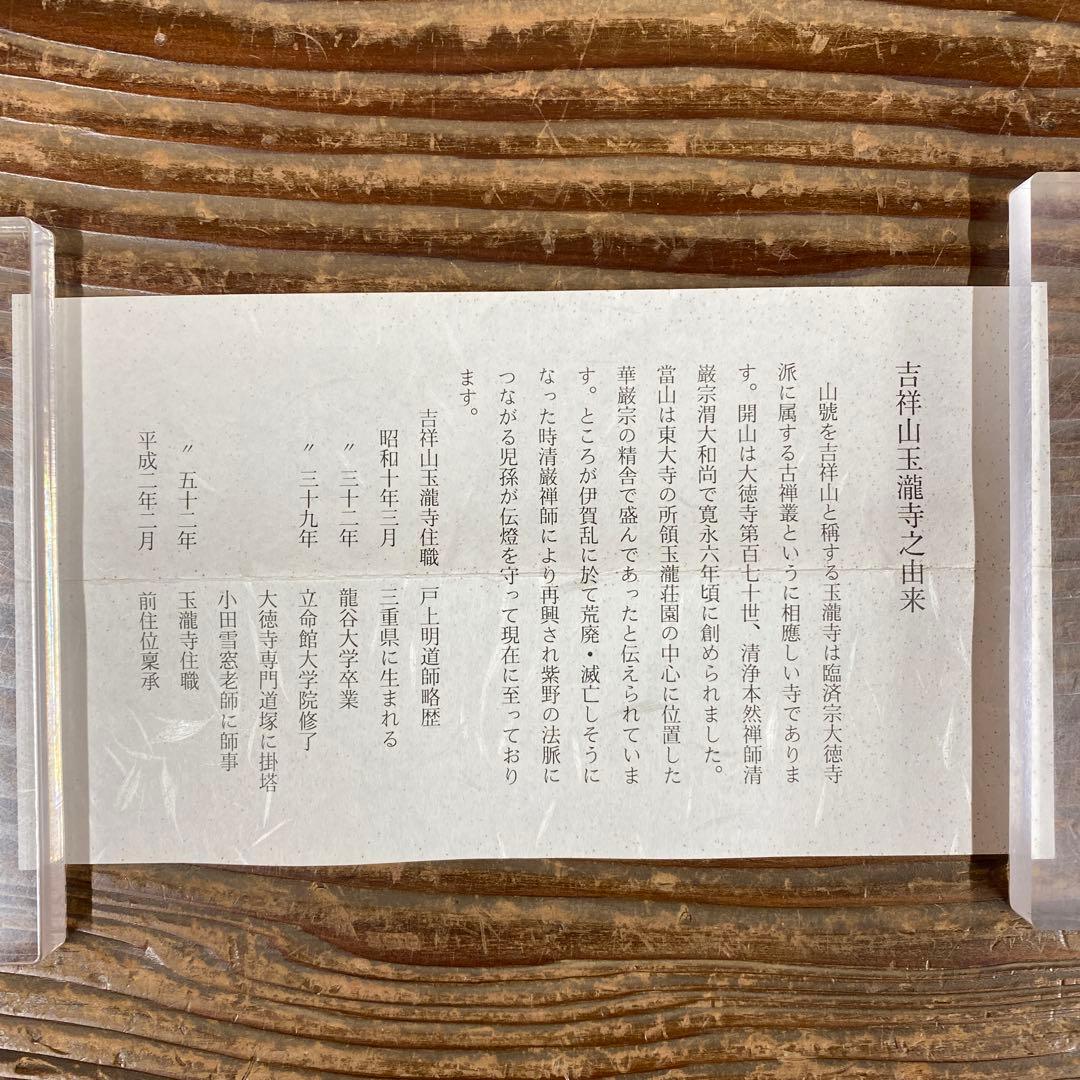 吉祥山玉瀧寺之由来
山號を吉祥山と稱する玉瀧寺は臨済宗大徳寺
派に属する古禅叢というに相應しい寺でありま
す。開山は大徳寺第百七十世、清浄本然禅師清
巌宗渭大和尚で寛永六年頃に創められました。
當山は東大寺の所領玉瀧荘園の中心に位置した
華厳宗の精舎で盛んであったと伝えられていま
す。ところが伊賀乱に於て荒廃・滅亡しそうに
なった時清巌禅師により再興され紫野の法脈に
つながる児孫が伝燈を守って現在に至っており
ます。
吉祥山玉瀧寺住職 戸上明道師略歴
昭和十年三月 三重県に生まれる
〃 三十二年 龍谷大学卒業
〃 三十九年 立命館大学院修了
大徳寺専門道塚に掛塔
小田雪窓老師に師事
〃 五十二年 玉瀧寺住職
平成二年二月 前住位稟承